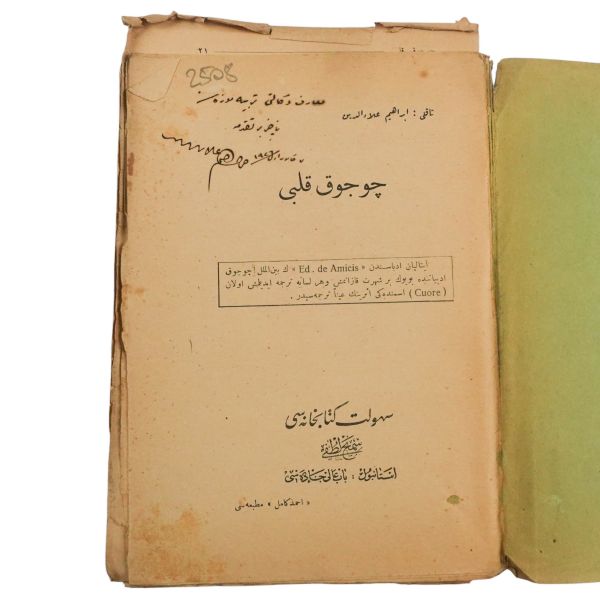 ٢١
2508
معارف وكالتی تربیه موزه‌سنه
ناقلی : ابراهیم علاءالدین
تقدیم
چوجوق قلبی
ایتالیان ادباسندن « Ed. de Amicis » ك بین‌الملل چوجوق
ادبیاتنده بویوك بر شهرت قازانمش وهر لسانه ترجمه ایدیلمش اولان
( Cuore ) اسمنده‌كی اثرینك عیناً ترجمه‌سیدر .
سهولت كتابخانه‌سی
سمیح لطفی
استانبول : باب عالی جاده‌سی
« احمد كامل » مطبعه‌سی